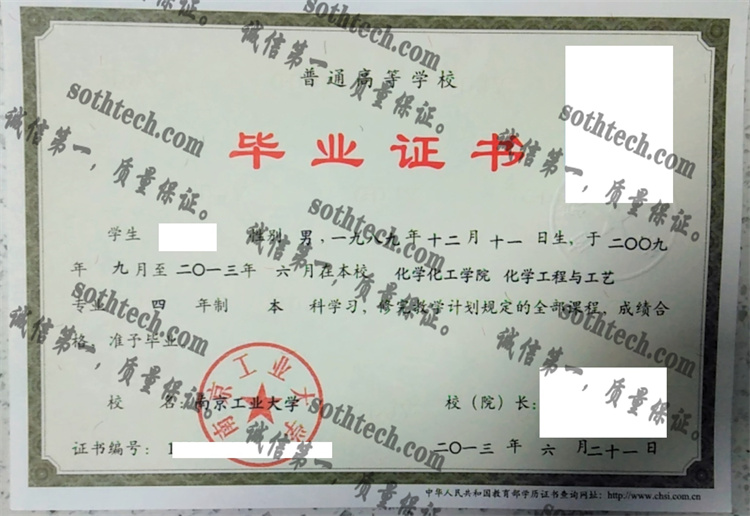 普通高等学校
毕业证书
学生 性别 男，一九八九年十二月十一日生，于二〇〇九
年九月至二〇一三年六月在本校 化学化工学院 化学工程与工艺
专业 四年制 本科学习，修完教学计划规定的全部课程，成绩合
格，准予毕业。
校 名：南京工业大学
校（院）长：
南京工业大学
证书编号：1
二〇一三年六月二十一日
中华人民共和国教育部学历证书查询网址：http://www.chsi.com.cn
sothtech.com
诚信第一，质量保证。
sothtech.com
诚信第一，质量保证。
sothtech.com
诚信第一，质量保证。
sothtech.com
诚信第一，质量保证。
sothtech.com
诚信第一，质量保证。
sothtech.com
诚信第一，质量保证。
sothtech.com
诚信第一，质量保证。
sothtech.com
诚信第一，质量保证。